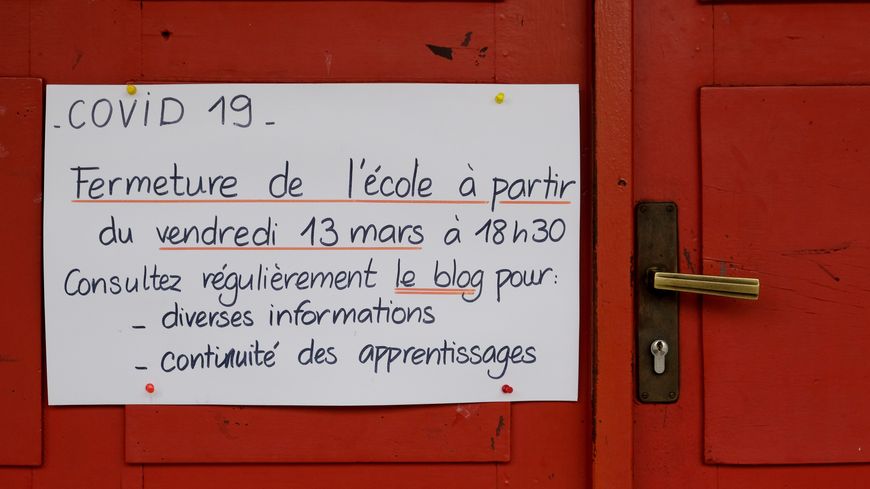 - COVID 19 -
Fermeture de l'école à partir
du vendredi 13 mars à 18h30
Consultez régulièrement le blog pour:
- diverses informations
- continuité des apprentissages